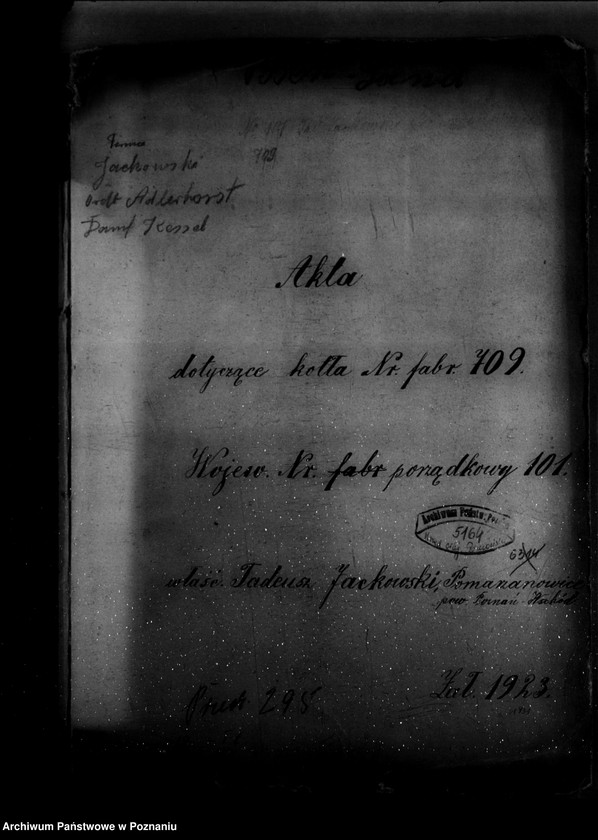 Firma
Jackowski
Ordt Adlerhorst
Dampf Kessel
709
Akta
dotyczące kotła Nr. fabr. 709.
Wojew. Nr. fabr porządkowy 101.
Archiwum Państw.
5164
6314
właśc. Tadeusz Jackowski, Pomarzanowice
pow. Poznań-Wschód
Zał. 1923.
295
Archiwum Państwowe w Poznaniu